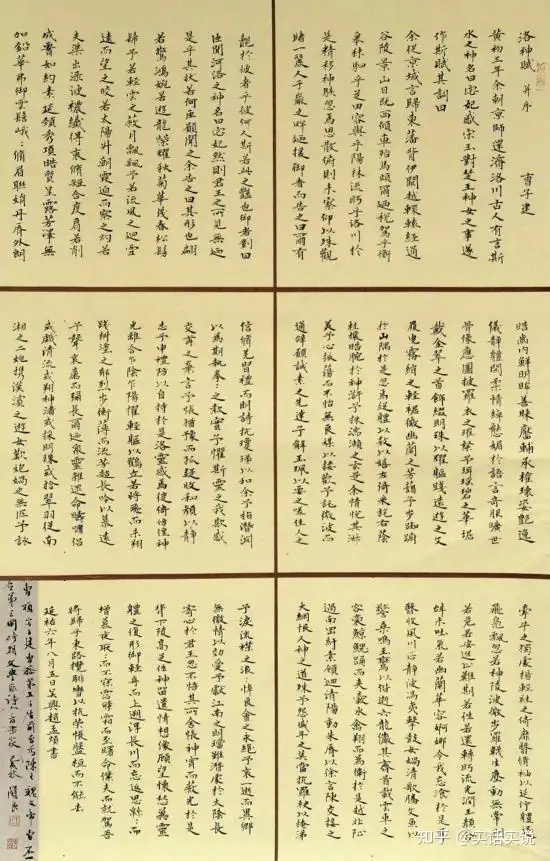 洛神賦 并序
曹子建
黃初三年余朝京師還濟洛川古人有言斯
水之神名曰宓妃感宋玉對楚王神女之事遂
作斯賦其詞曰
余從京域言歸東藩背伊闕越轘轅經通
谷陵景山日既西傾車殆馬煩爾迺稅駕乎蘅
皋秣駟乎芝田容與乎陽林流眄乎洛川於
是精移神駭忽焉思散俯則未察仰以殊觀
睹一麗人于巖之畔迺援御者而告之曰爾有
覿於彼者乎彼何人斯若此之豔也御者對曰
臣聞河洛之神名曰宓妃然則君王之所見無迺
是乎其狀若何臣願聞之余告之曰其形也翩
若驚鴻婉若遊龍榮曜秋菊華茂春松髣
髴兮若輕雲之蔽月飄颻兮若流風之迴雪
遠而望之皎若太陽升朝霞迫而察之灼若
芙蕖出淥波穠纖得衷脩短合度肩若削
成腰如約素延頸秀項皓質呈露芳澤無
加鉛華弗御雲髻峩〻脩眉聯娟丹脣外朗
皓齒內鮮明眸善睞靨輔承權瓌姿豔逸
儀靜體閑柔情綽態媚於語言奇服曠世
骨像應圖披羅衣之璀粲兮珥瑤碧之華琚
戴金翠之首飾綴明珠以耀軀踐遠遊之文
履曳霧綃之輕裾微幽蘭之芳藹兮步踟躕
於山隅於是忽焉縱體以遨以嬉左倚采旄右蔭
桂旗攘皓腕於神滸兮采湍瀨之玄芝余情悅其淑
美兮心振蕩而不怡無良媒以接歡兮託微波而
通辭願誠素之先達兮解玉珮以要之嗟佳人之
信脩羌習禮而明詩抗瓊珶以和余兮指潛淵
以為期執拳〻之款實兮懼斯靈之我欺感
交甫之棄言兮悵猶豫而狐疑收和顏以靜
志兮申禮防以自持於是洛靈感焉徙倚仿偟神
光離合乍陰乍陽擢輕軀以鶴立若將飛而未翔
踐椒塗之郁烈步蘅薄而流芳超長吟以慕遠
兮聲哀厲而彌長爾迺衆靈雜遝命疇嘯侶
或戲清流或翔神渚或採明珠或拾翠羽從南
湘之二妃攜漢濱之遊女歎匏媧之無匹兮詠
牽牛之獨處揚輕袿之倚靡翳脩袖以延佇體迅
飛鳧飄忽若神陵波微步羅韈生塵動無常則
若危若安進止難期若往若還轉眄流光潤玉顏含
辭未吐氣若幽蘭華容婀娜令我忘飡於是
屏翳收風川后靜波馮夷擊鼓女媧清歌騰文魚以
警乘鳴玉鸞以偕逝六龍儼其齊首載雲車之
容裔鯨鯢踊而夾轂水禽翔而為衛於是越北沚
過南岡紆素領迴清陽動朱脣以徐言陳交接之
大綱恨人神之道殊兮怨盛年之莫當抗羅袂以掩涕
兮淚流襟之浪〻悼良會之永絕兮哀一逝而異鄉
無微情以效愛兮獻江南之明璫雖潛處於太陰長
寄心於君王忽不悟其所舍悵神宵而蔽光於是
背下陵高足往神留遺情想像顧望懷愁冀靈
體之復形御輕舟而上遡浮長川而忘返思緜〻而
增慕夜耿〻而不寐霑繁霜而至曙命僕夫而就駕吾
將歸乎東路攬騑轡以抗策悵盤桓而不能去
延祐六年八月五日吳興趙孟頫書
知乎 @实话实说